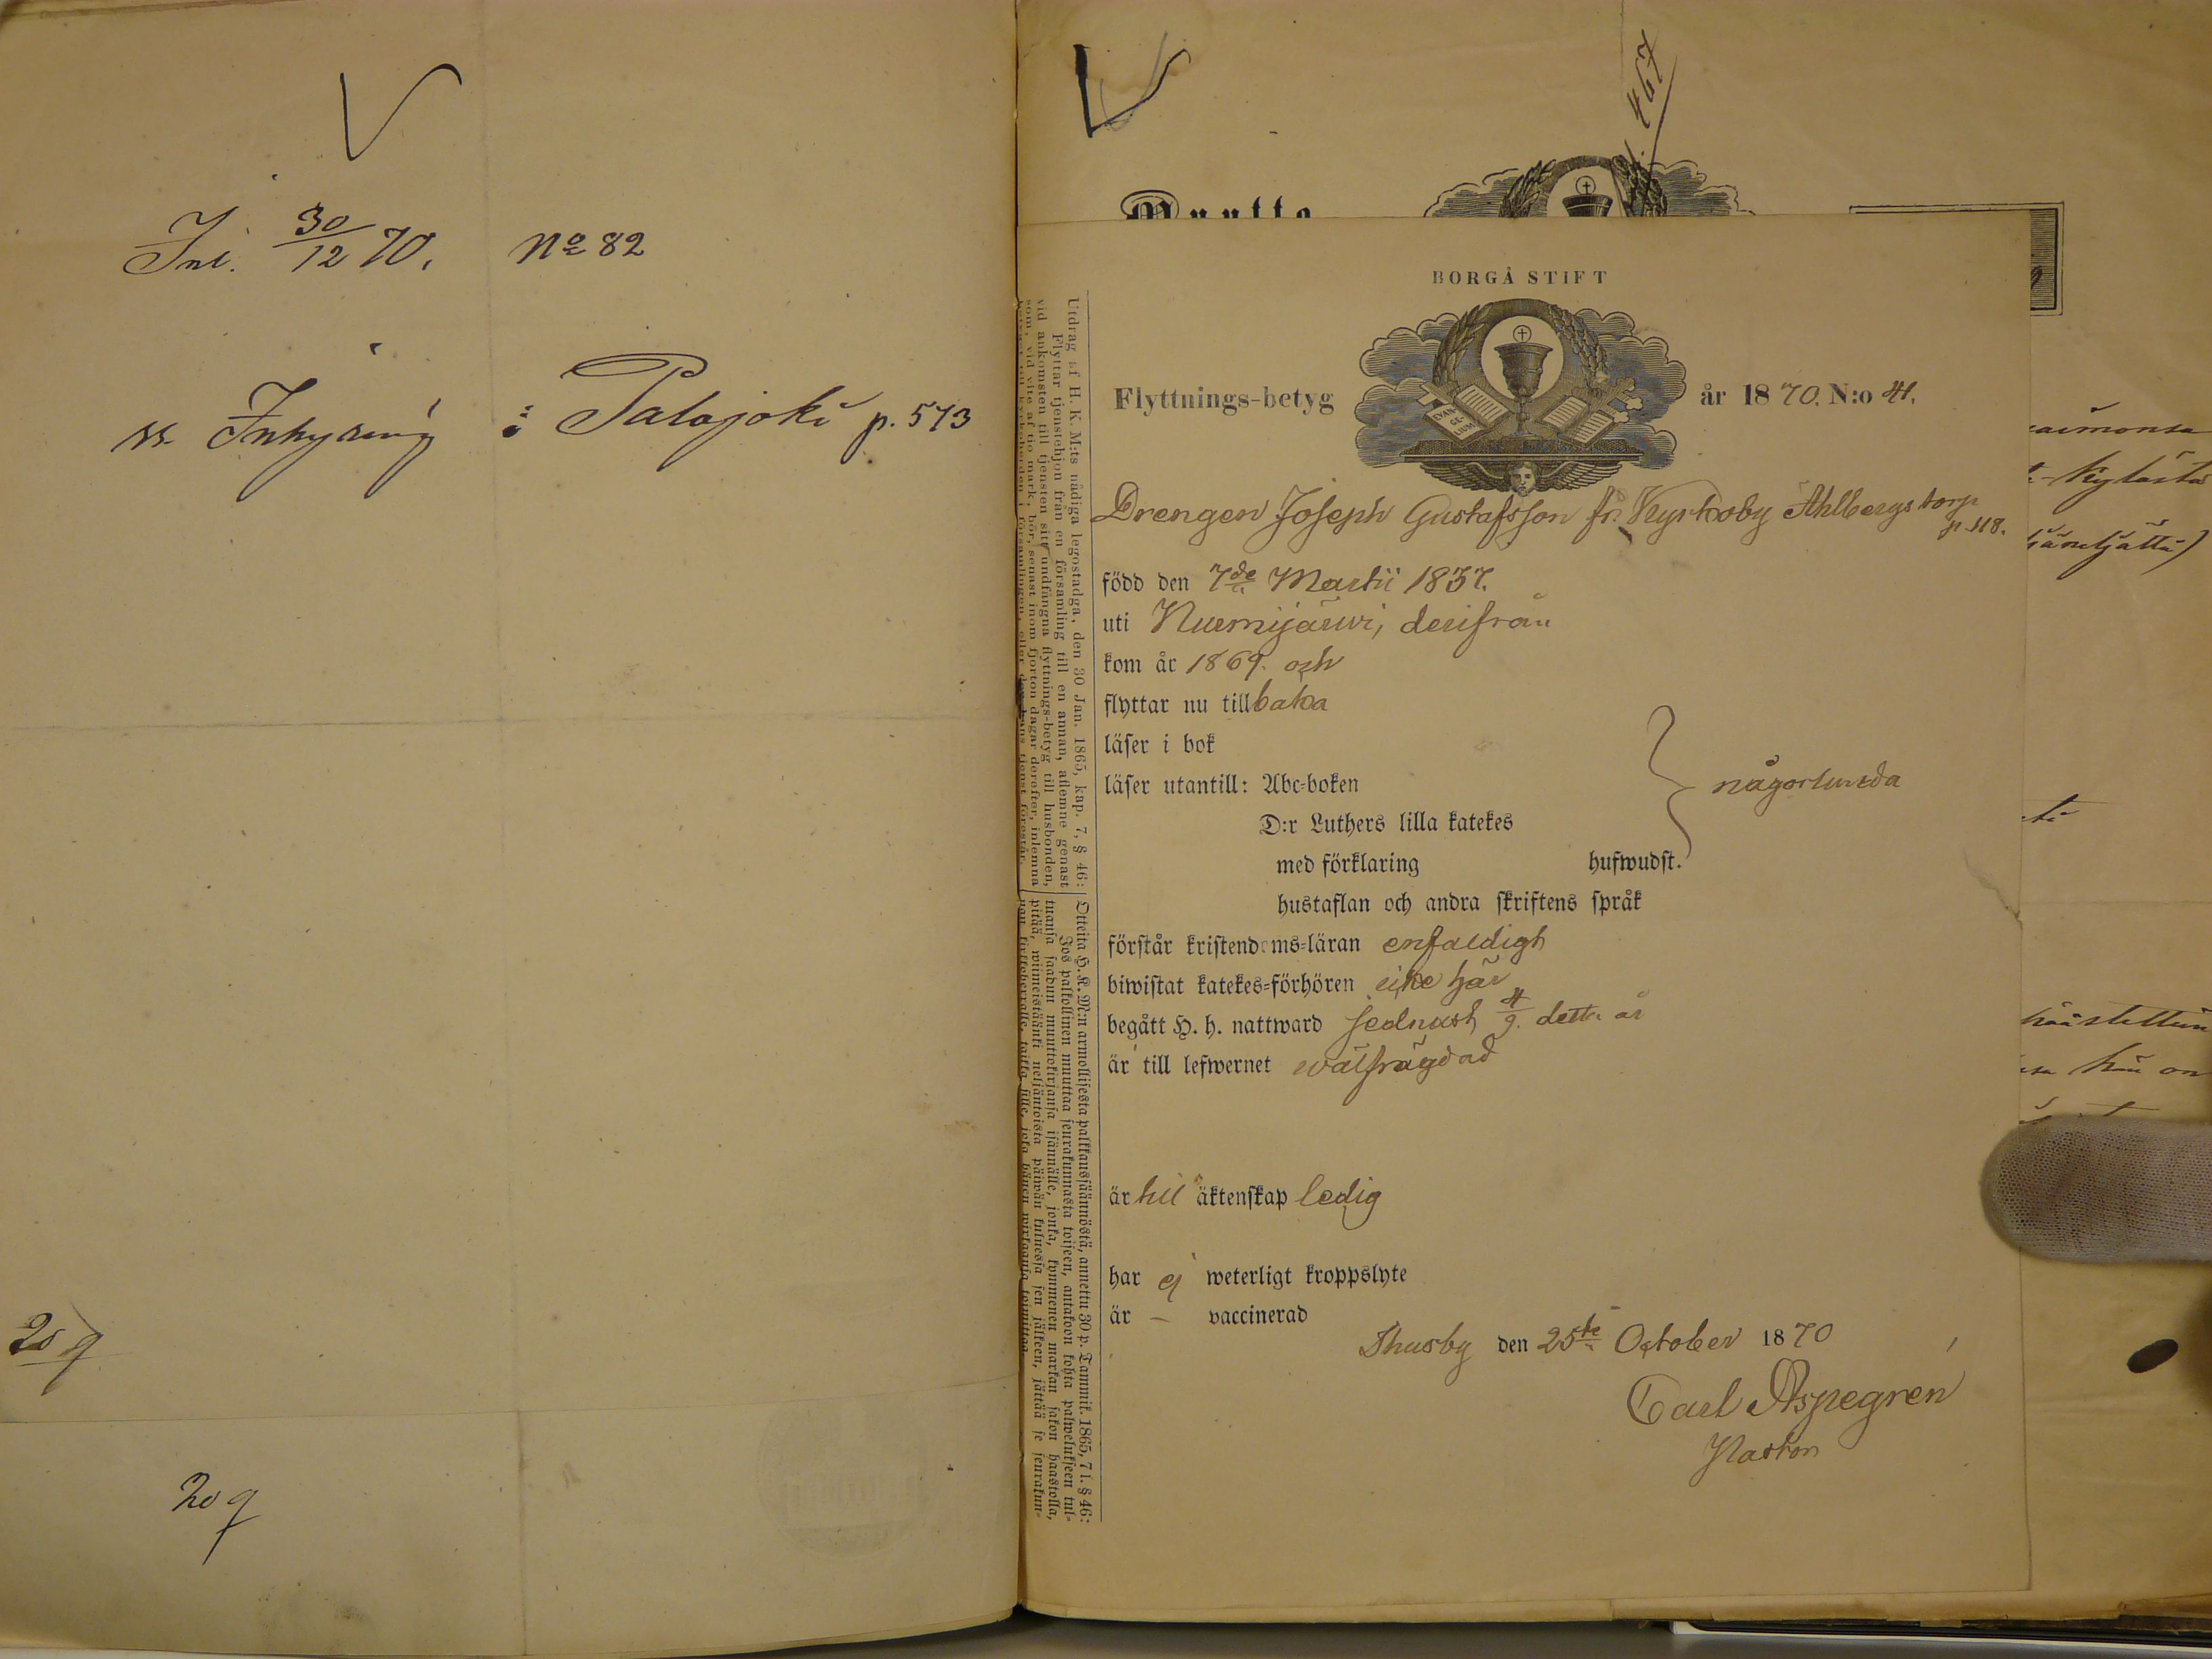 Inl. 30/12 70. No 82
ss. Inhysing i Palojoki p. 573
20 g
BORGÅ STIFT
Flyttnings-betyg år 1870. N:o 41.
EVAN-
GE-
LIUM
Drengen Joseph Gustafsson fr. Kyrkoby Ahlbergs torp
p. 118.
född den 7de Martii 1837.
uti Nurmijärwi, derifrån
kom år 1869. och
flyttar nu tillbaka
läser i bok
läser utantill: Abc-boken någorlunda
D:r Luthers lilla katekes
med förklaring hufwudst.
hustaflan och andra skriftens språk
förstår kristendoms-läran enfaldigt
biwistat katekes-förhören icke här
begått H. h. nattward sednast 4/9. detta år
är till lefwernet wälfrägdad
är till äktenskap ledig
har ej weterligt kroppslyte
är — vaccinerad
Thusby den 25te October 1870
Carl Aspegren
Utdrag af H. K. M:ts nådiga legostadga, den 30 Jan. 1865, kap. 7, § 46:
Flyttar tjenstehjon från en församling till en annan, aflemne genast
vid ankomsten till tjensten sitt undfångna flyttnings-betyg till husbonden,
som, vid vite af tio mark, bör, senast inom fjorton dagar derefter, inlemna
Otteita H. K. M:n armollisesta palkkaussäännöstä, annettu 30 p. Tammik. 1865, 7 l. § 46:
Jos palkollinen muuttaa seurakunnasta toiseen, antakoon kohta palwelukseen tul-
tuansa saadun muuttokirjansa isännälle, jonka, kymmenen markan sakon haastolla,
pitää, wiimeistäänki neljäntoista päiwän kuluessa sen jälkeen, jättää se seurakun-
467
Muutto